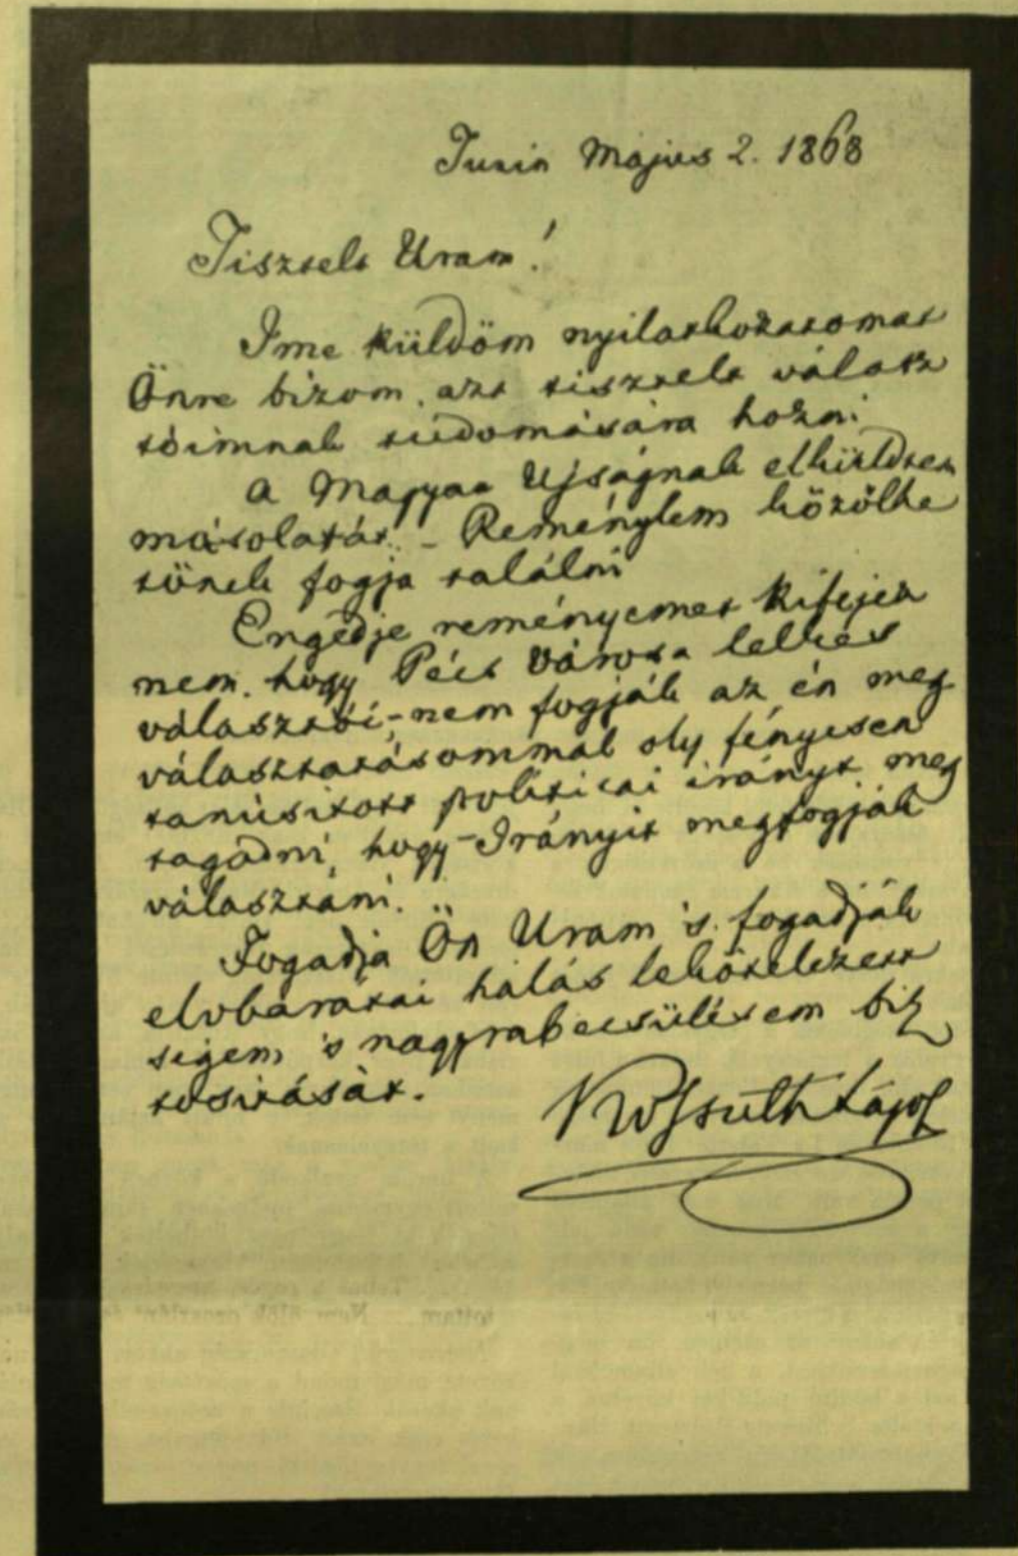 Turin Május 2. 1868
Tisztelt Uram!
Ime küldöm nyilatkozatomat
Önre bizom, azt tisztelt válasz
tóimnak tudomására hozni
A Magyar Ujságnak elküldtem
másolatát. – Reménylem közölhe
tőnek fogja találni
Engedje reményemet kifejez
nem, hogy Pécs városa lelkes
választói, – nem fogják az én meg
választatásommal oly fényesen
tanúsitott politicai irányt meg
tagadni, hogy – Irányit megfogják
választani.
Fogadja Ön Uram 's fogadják
elvbarátai hálás lekötelezett
ségem 's nagyrabecsülésem biz
tositását.
Kossuth Lajos